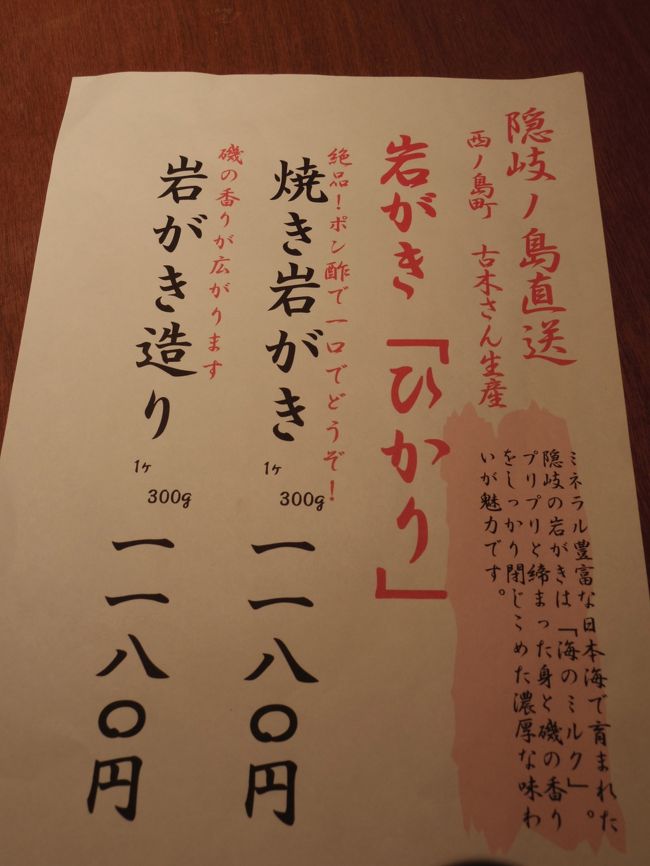 隠岐ノ島直送
西ノ島町　古木さん生産
ミネラル豊富な日本海で育まれた
隠岐の岩がきは「海のミルク」。
プリプリと締まった身と磯の香り
をしっかり閉じこめた濃厚な味わ
いが魅力です。
岩がき「ひかり」
絶品！ポン酢で一口でどうぞ！
焼き岩がき
1ヶ
300g
一一八〇円
磯の香りが広がります
岩がき造り
1ヶ
300g
一一八〇円